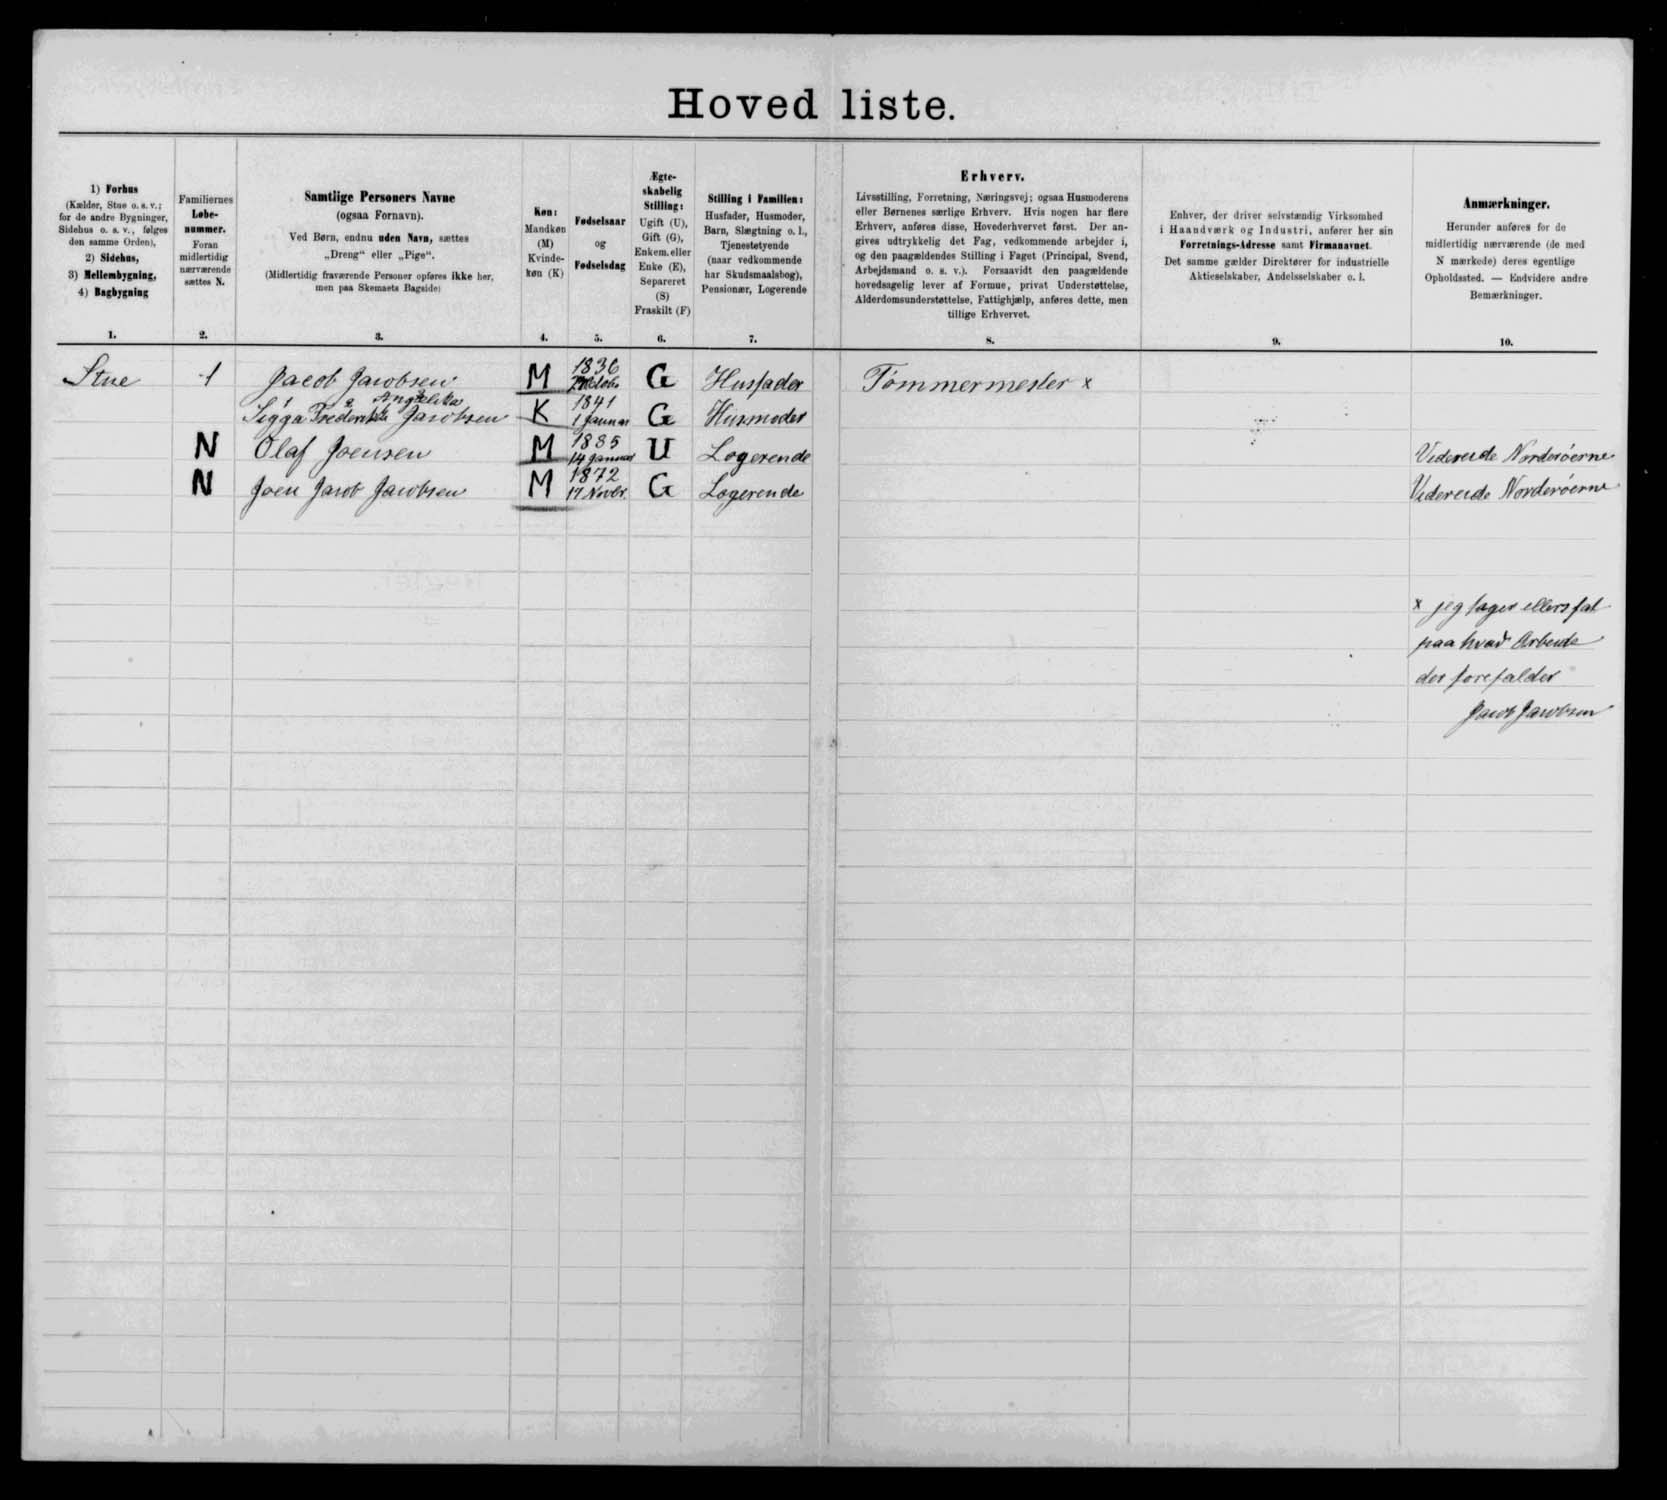 Hoved liste.
1) Forhus
(Kælder, Stue o. s. v.;
for de andre Bygninger,
Sidehus o. s. v., følges
den samme Orden),
2) Sidehus,
3) Mellembygning,
4) Bagbygning
1.
Familiernes
Løbe-
nummer.
Foran
midlertidig
nærværende
sættes N.
2.
Samtlige Personers Navne
(ogsaa Fornavn).
Ved Børn, endnu uden Navn, sættes
„Dreng“ eller „Pige“.
(Midlertidig fraværende Personer opføres ikke her,
men paa Skemaets Bagside)
3.
Køn:
Mandkøn
(M)
Kvinde-
køn (K)
4.
Fødselsaar
og
Fødselsdag
5.
Ægte-
skabelig
Stilling:
Ugift (U),
Gift (G),
Enkem. eller
Enke (E),
Separeret
(S)
Fraskilt (F)
6.
Stilling i Familien:
Husfader, Husmoder,
Barn, Slægtning o. l.,
Tjenestetyende
(naar vedkommende
har Skudsmaalsbog),
Pensionær, Logerende
7.
Erhverv.
Livsstilling, Forretning, Næringsvej; ogsaa Husmoderens
eller Børnenes særlige Erhverv. Hvis nogen har flere
Erhverv, anføres disse, Hovederhvervet først. Der an-
gives udtrykkelig det Fag, vedkommende arbejder i,
og den paagældendes Stilling i Faget (Principal, Svend,
Arbejdsmand o. s. v.). Forsaavidt den paagældende
hovedsagelig lever af Formue, privat Understøttelse,
Alderdomsunderstøttelse, Fattighjælp, anføres dette, men
tillige Erhvervet.
8.
Enhver, der driver selvstændig Virksomhed
i Haandværk og Industri, anfører her sin
Forretnings-Adresse samt Firmanavnet.
Det samme gælder Direktører for industrielle
Aktieselskaber, Andelsselskaber o. l.
9.
Anmærkninger.
Herunder anføres for de
midlertidig nærværende (de med
N mærkede) deres egentlige
Opholdssted. — Endvidere andre
Bemærkninger.
10.
Stue 1 Jacob Jacobsen M 1836 Octobr G Husfader Tømmermester x
Angelika
Sigga Frederikke Jacobsen K 1841 1 Januar G Husmoder
N Olaf Joensen M 1885 14 Januar U Logerende Viderejde Norderöerne
N Joen Jacob Jacobsen M 1872 17 Novbr. G Logerende Viderejde Norderöerne
x jeg tager ellers fat
paa hvad Arbeide
der forefalder
Jacob Jacobsen